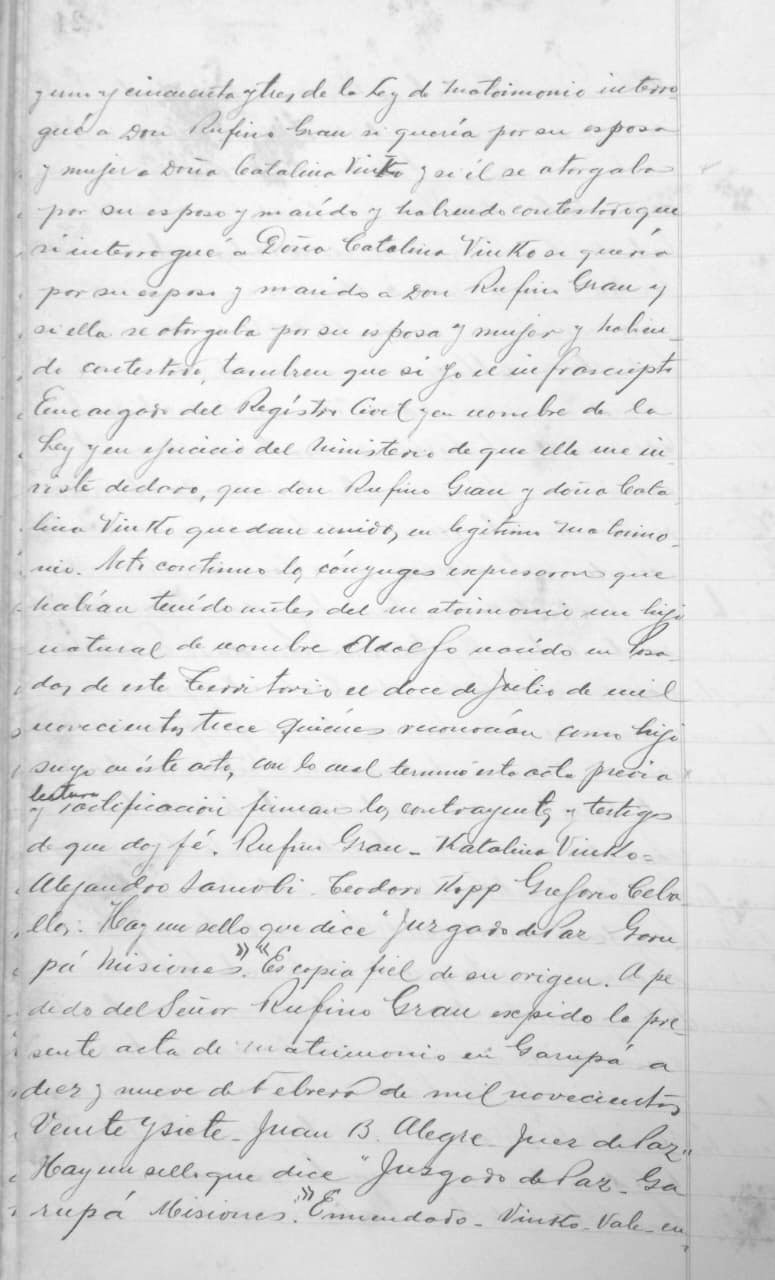 y uno y cincuenta y tres de la Ley de Matrimonio interro-
gué a Don Rufino Grau si quería por su esposa
y mujer a Doña Catalina Vinkto y si él se otorgaba
por su esposo y marido y habiendo contestado que
si interrogué a Doña Catalina Vinkto si quería
por su esposo y marido a Don Rufino Grau y
si ella se otorgaba por su esposa y mujer y habien-
do contestado, tambien que si Yo el infrascripto
Encargado del Registro Civil y en nombre de la
Ley y en ejercicio del Ministerio de que ella me in-
viste declaro, que don Rufino Grau y doña Cata-
lina Vinkto quedan unidos en legítimo Matrimo-
nio. Acto continuo los cónyuges expresaron que
habían tenido antes del matrimonio un hijo
natural de nombre Adolfo nacido en Posa-
das de este Territorio el doce de Julio de mil
novecientos trece quiénes reconocían como hijo
suyo en éste acto, con lo cual terminó esta acta previa
lectura
y ratificación firman los contrayentes y testigos
de que doy fé. Rufino Grau - Katalina Vinkto =
Alejandro Teodoro Kopp Gregorio Ceba-
llos: Hay un sello que dice "Juzgado de Paz Garu
pá Misiones". "Es copia fiel de su origen. A pe
dido del Señor Rufino Grau expido la pre-
sente acta de matrimonio en Garupá a
diez y nueve de Febrero de mil novecientos
Veinte y siete - Juan B. Alegre - Juez de Paz"
Hay un sello que dice "Juzgado de Paz - Ga
rupá Misiones". Enmendado - Vinkto - Vale - en-